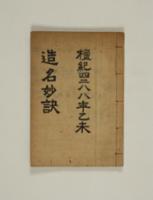 檀紀四二八八年乙未
造名妙訣